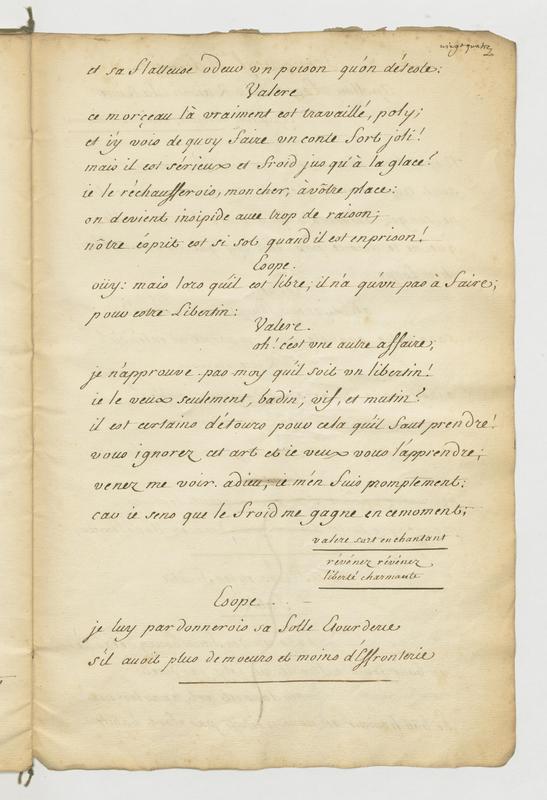 vingt quatre
et sa flatteuse odeur un poison qu'on déteste:
Valere
ce morçeau là vraiment est travaillé, poly;
et i'y vois de quoy faire un conte fort joli!
mais il est sérieux et froid jusqu'à la glace!
ie le réchaufferois, mon cher, à vôtre place:
on devient insipide avec trop de raison;
nôtre ésprit est si sot quand il est en prison!
Esope.
oüy: mais lors qu'il est libre, il n'a qu'un pas à faire;
pour estre Libertin:
Valere.
oh! c'est une autre affaire;
je n'approuve pas moy qu'il soit un libertin!
ie le veux seulement, badin, vif, et mutin!
il est certains détours pour cela qu'il faut prendre!
vous ignorez cet art et ie veux vous l'apprendre;
venez me voir. adieu; ie m'en fuis promptement:
car ie sens que le froid me gagne en ce moment;
valere sort en chantant
révénez révénez
liberté charmante
Esope.
je luy pardonnerois sa folle Etourderie
s'il avoit plus de moeurs et moins d'Effronterie